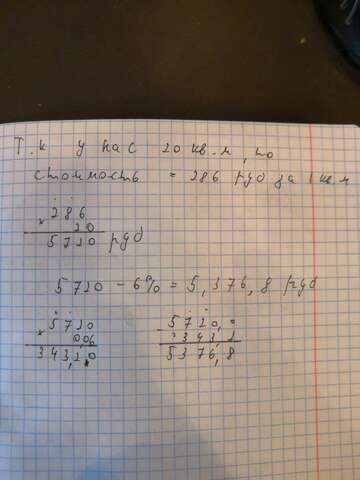 Т.к у нас 20 кв.м, то
стоимость = 286 руб за 1 кв.м
× 286
20
5720 руб
5720 - 6% = 5,376,8 руб
× 5720
0,06
343,20
- 5720,0
343,2
5376,8